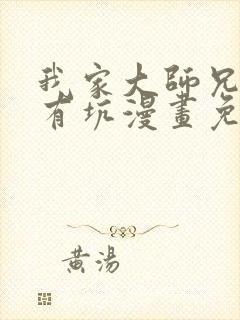 我家大師兄
有坑漫畫免
黃湯